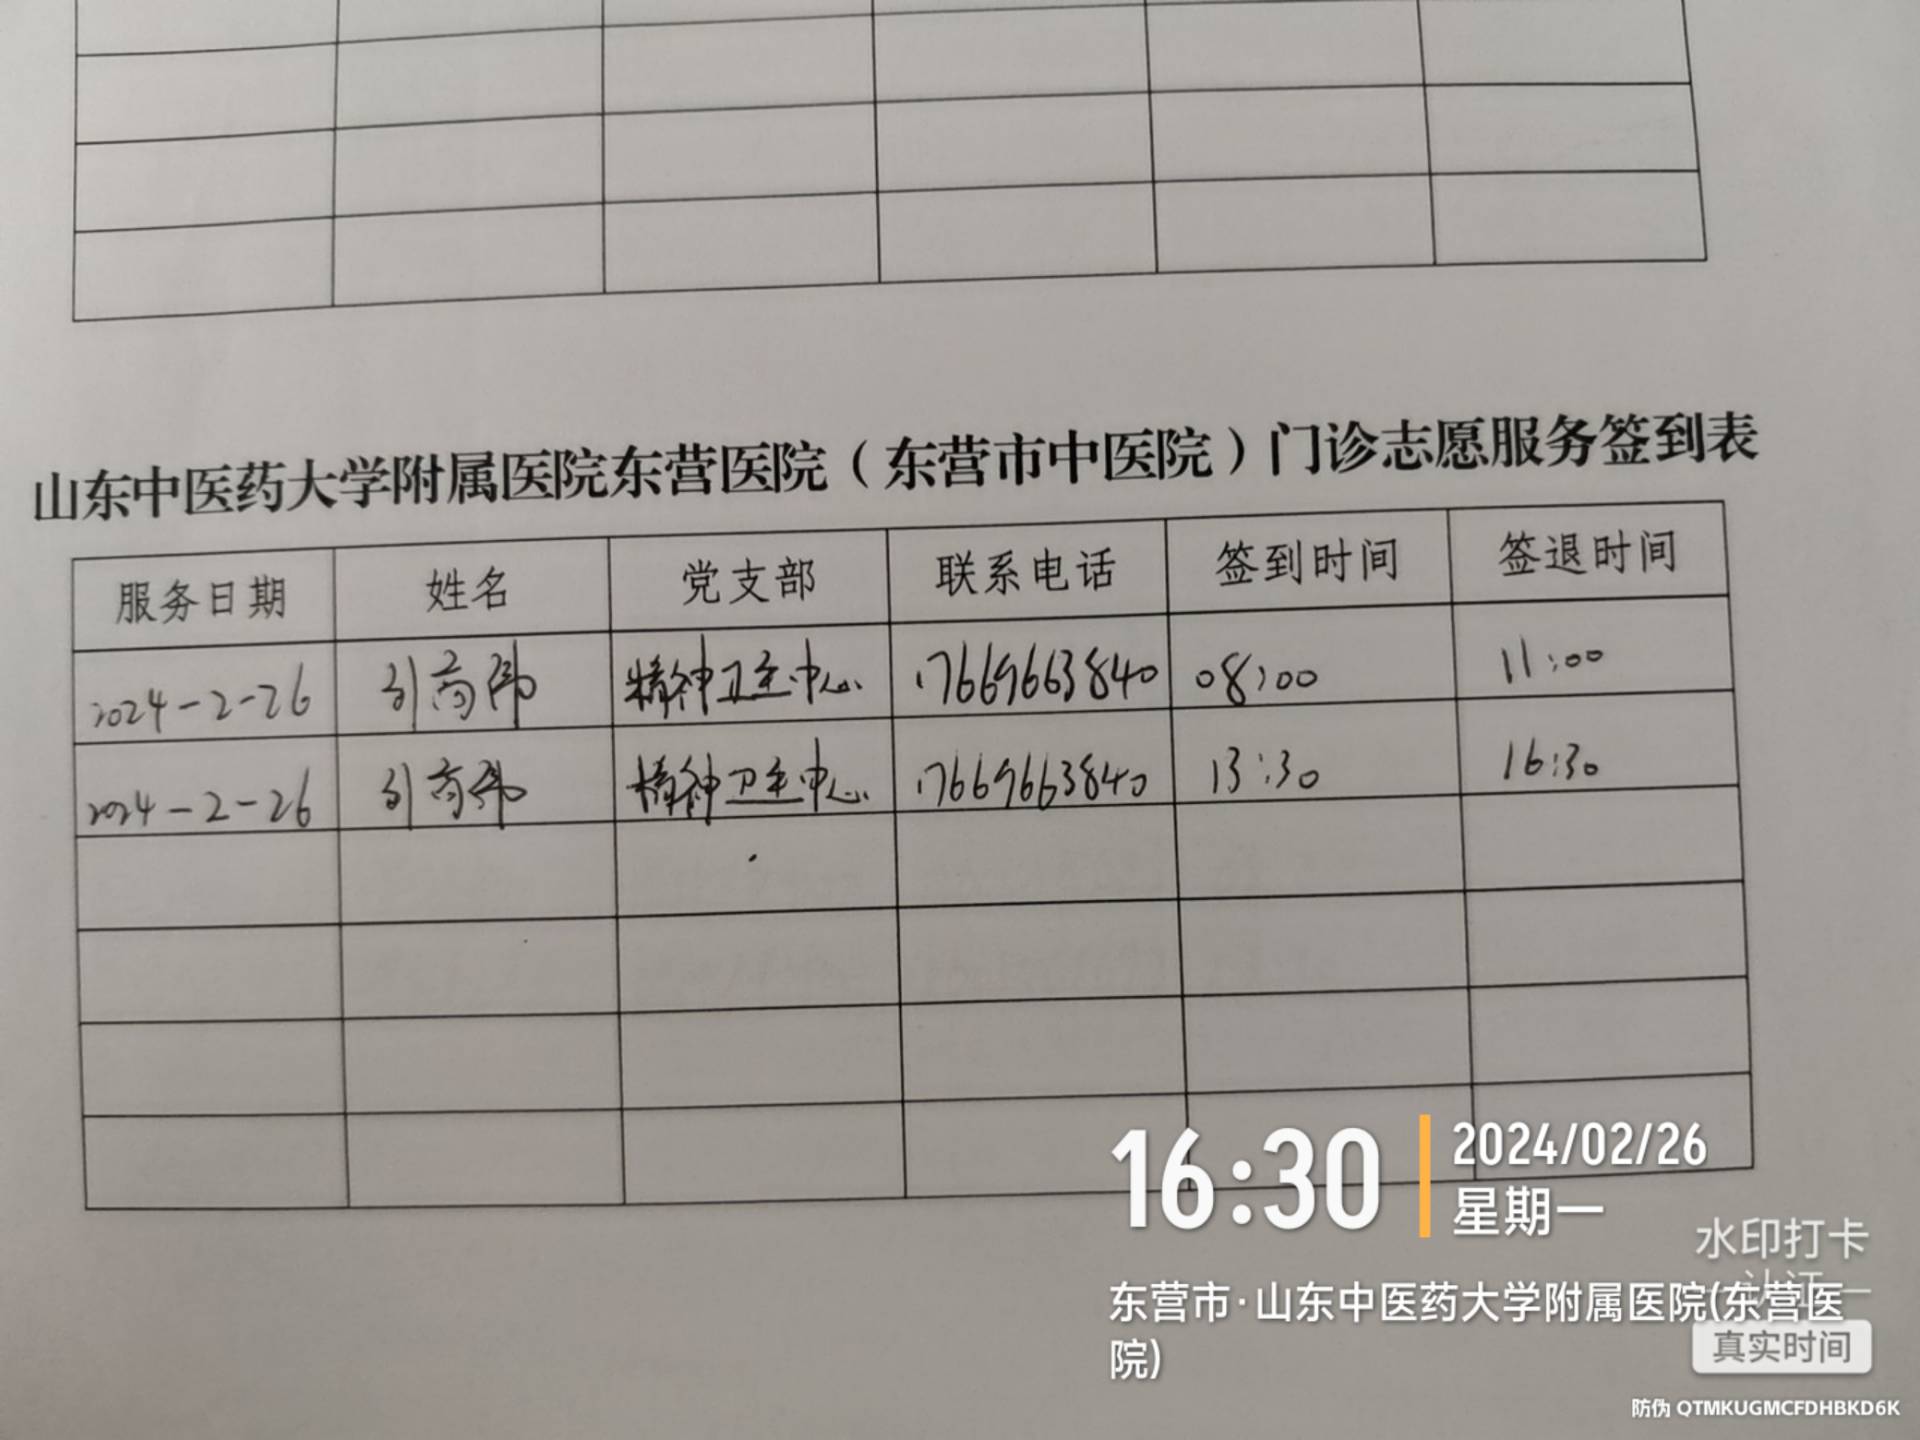 山东中医药大学附属医院东营医院（东营市中医院）门诊志愿服务签到表
服务日期 姓名 党支部 联系电话 签到时间 签退时间
2024-2-26 精神卫生中心 17669663840 08:00 11:00
2024-2-26 精神卫生中心 17669663840 13:30 16:30
16:30
2024/02/26
星期一
水印打卡
东营市·山东中医药大学附属医院(东营医
院)
真实时间
防伪 QTMKUGMCFDHBKD6K